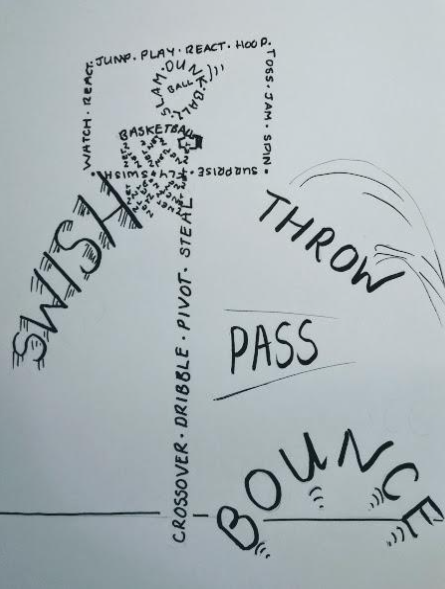 WATCH · REACT
JUMP · PLAY · REACT · HOOP ·
TOSS · JAM · SPIN ·
SURPRISE · FLY · SWISH ·
SLAM · DUNK · BALL
BALL
BASKETBALL
SWISH
CROSSOVER · DRIBBLE · PIVOT · STEAL
THROW
PASS
BOUNCE